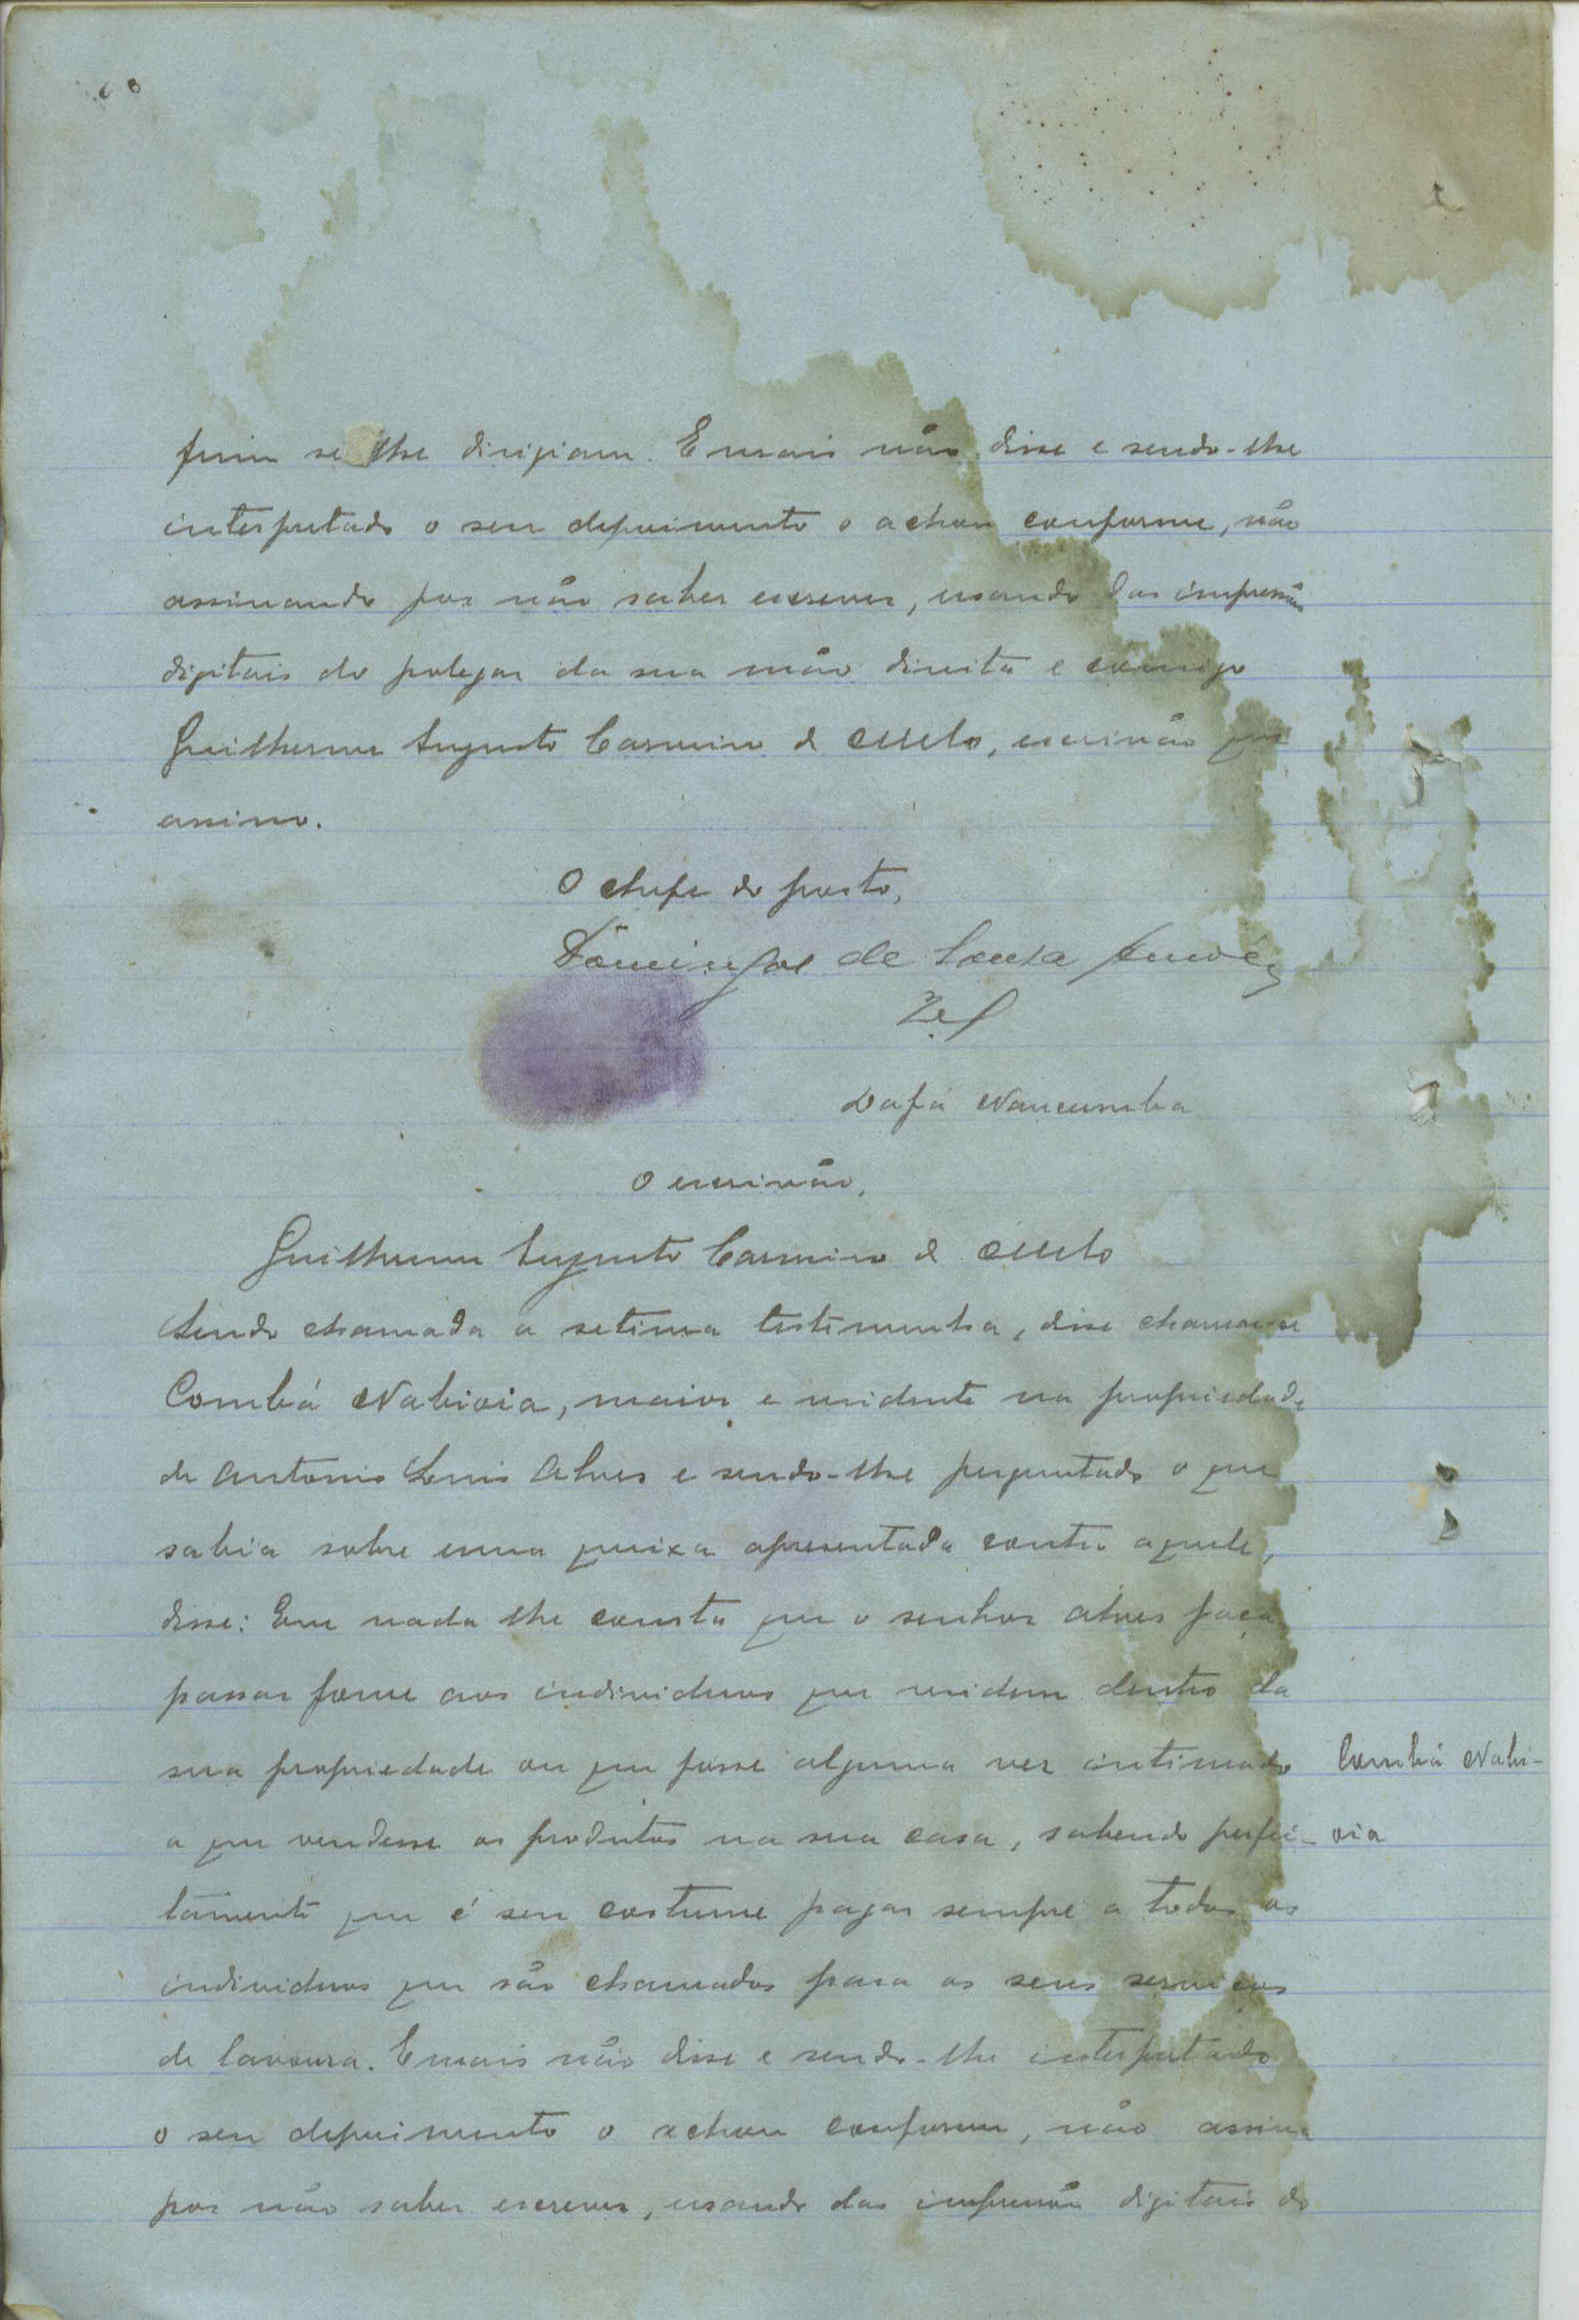 fim se lhe dirigiam. E mais não disse e sendo-lhe
interpretado o seu depoimento o achou conforme, não
assinando por não saber escrever, usando das impressões
digitais do polegar da sua mão direita e comigo
Guilherme Augusto Casmiro de Mello, escrivão que
assino.
O chefe do posto,
Domingos de Sousa
Dafá Nancumba
O escrivão,
Guilherme Augusto Casmiro de Mello
Sendo chamada a setima testemunha, disse chamar-se
Combá Nabioia, maior e residente na propriedade
de Antonio Luis Alves e sendo-lhe perguntado o que
sabia sobre uma queixa apresentada contra aquele,
disse: Em nada lhe consta que o senhor Alves faça
passar fome aos individuos que residem dentro da
sua propriedade ou que fosse alguma vez intimado
a que vendesse os produtos na sua casa, sabendo perfei-
tamente que é seu costume pagar sempre a todos os
individuos que são chamados para os seus serviços
de lavoura. E mais não disse e sendo-lhe interpretado
o seu depoimento o achou conforme, não assina
por não saber escrever, usando das impressões digitais do
Combá Nabi-
oia